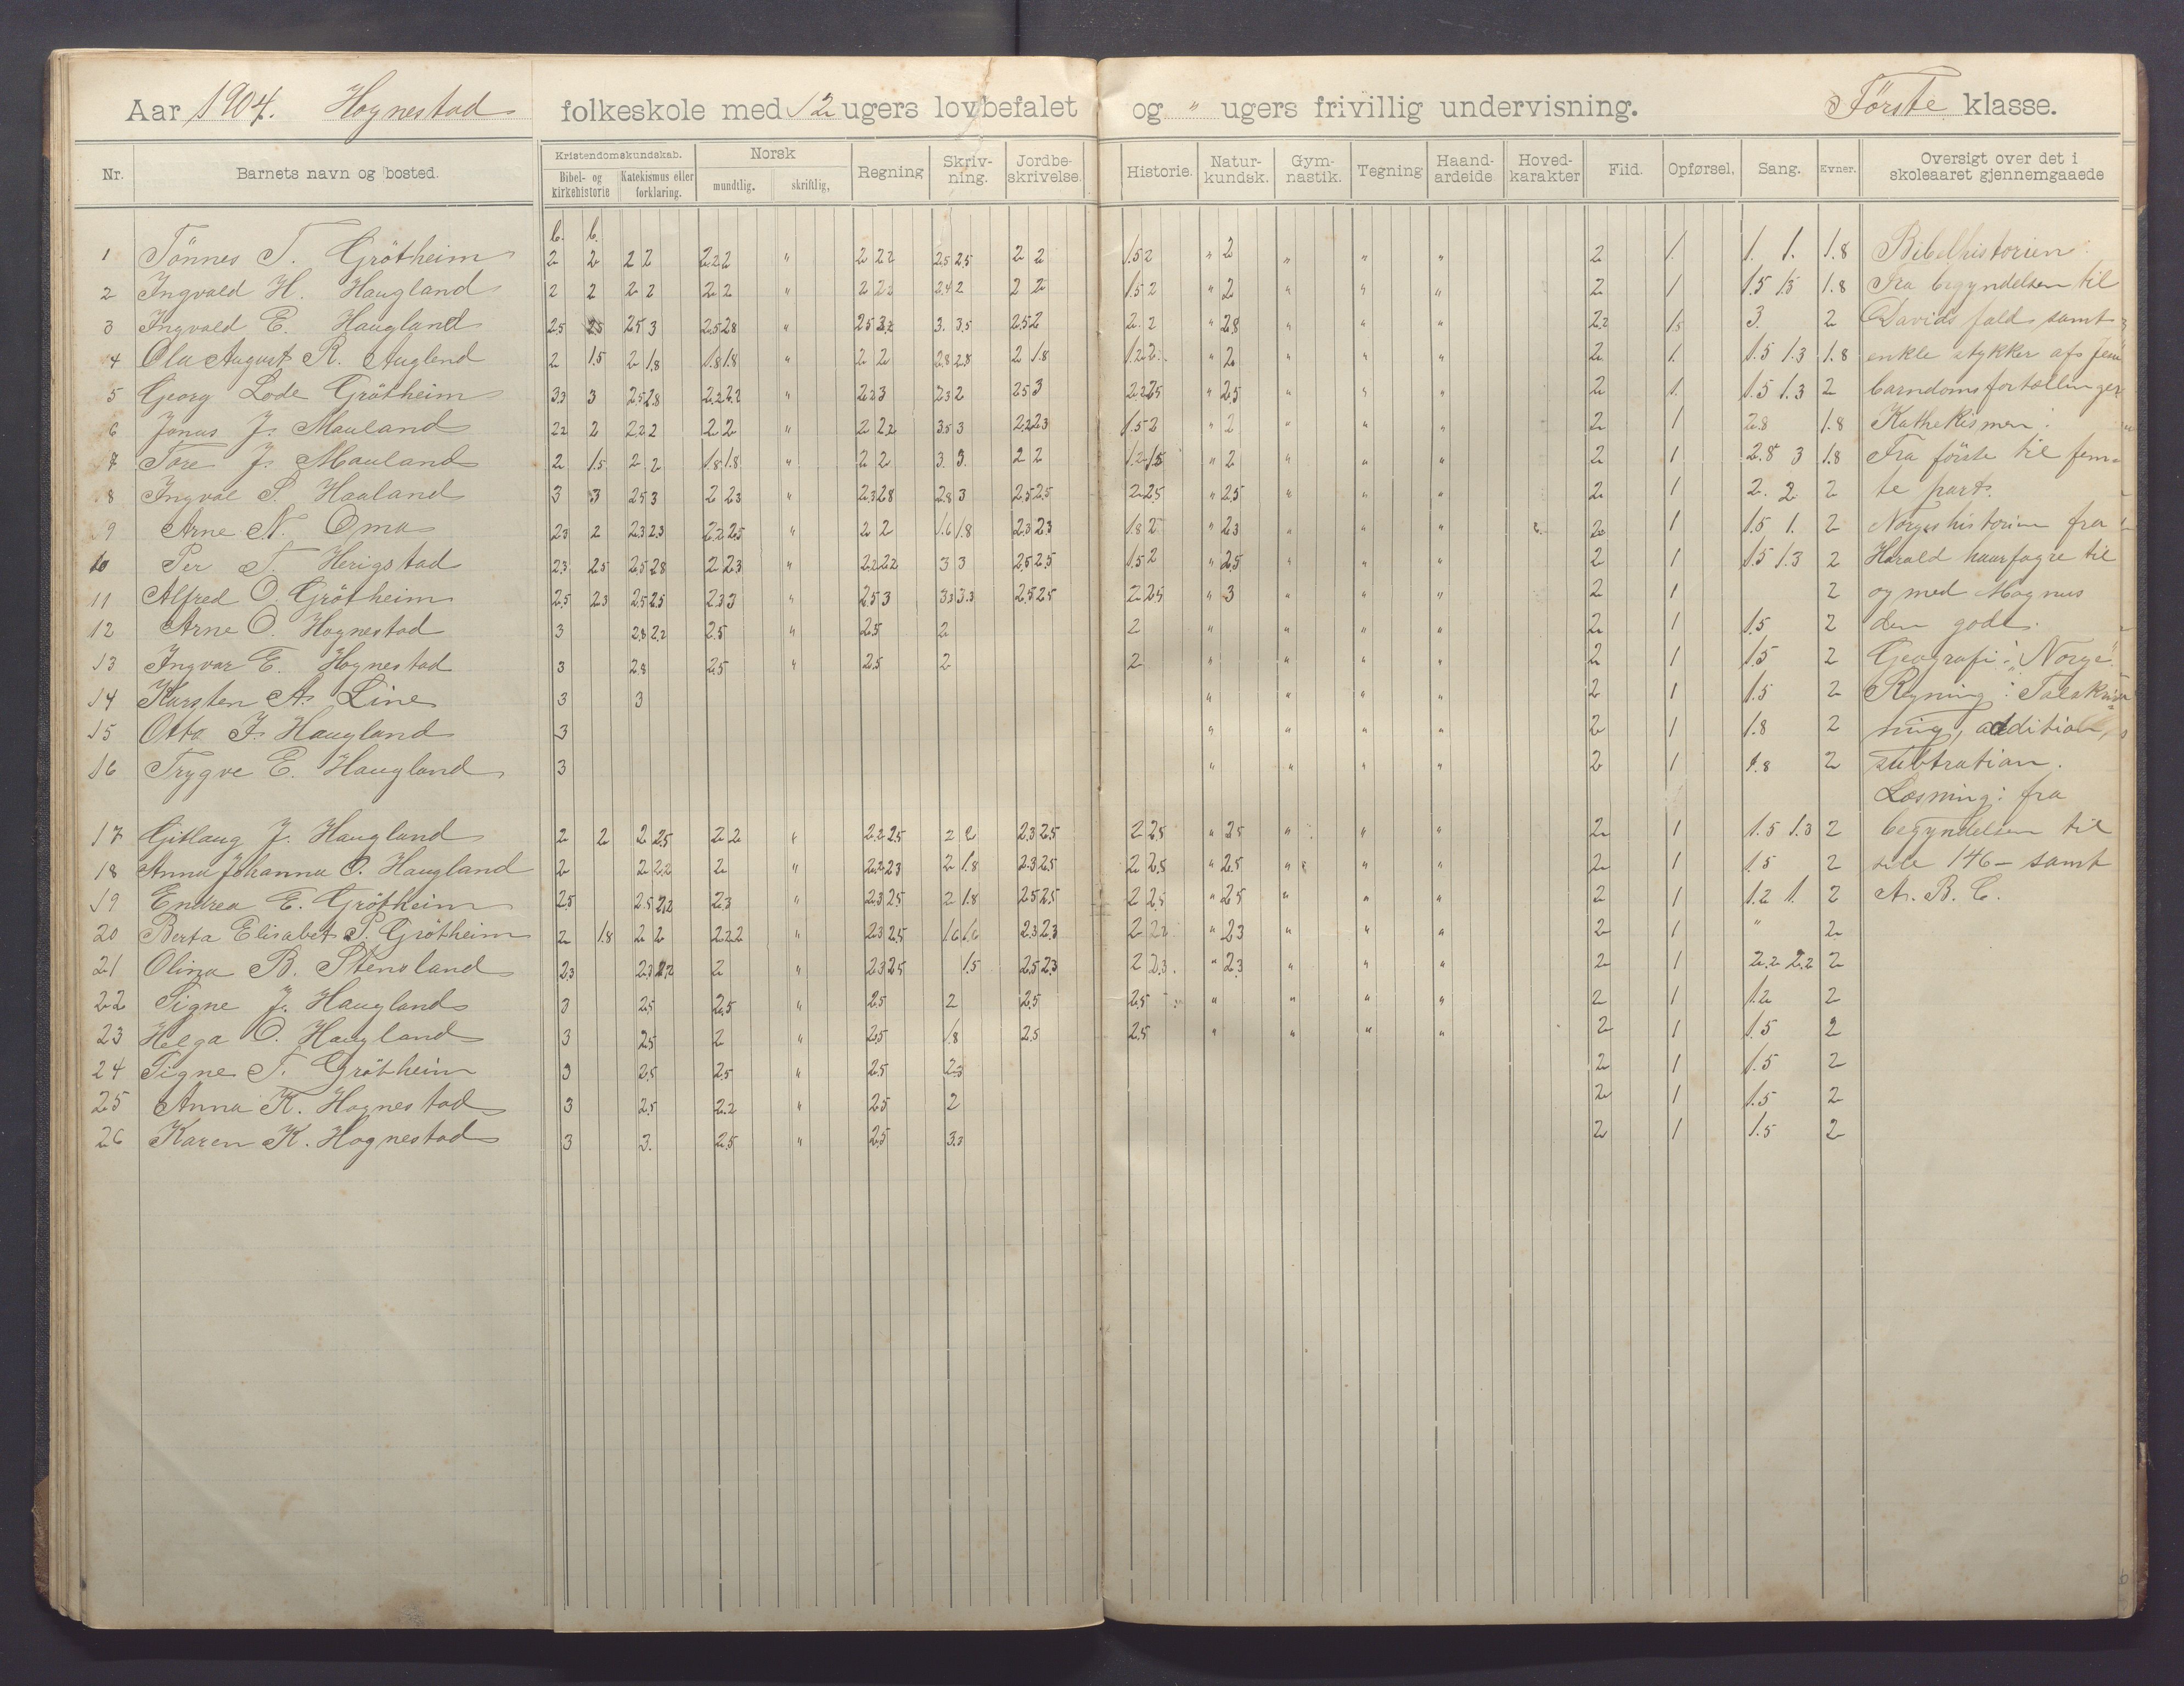 Aar 1904. Hognestad folkeskole med 12 ugers lovbefalet og " ugers frivillig undervisning. Første klasse.
Nr. Barnets navn og bosted. Kristendomskundskab. Bibel- og kirkehistorie Katekismus eller forklaring. Norsk mundtlig. skriftlig, Regning Skriv-ning. Jordbe-skrivelse. Historie. Natur-kundsk. Gym-nastik. Tegning Haand-arbeide Hoved-karakter Flid. Opførsel. Sang. Evner. Oversigt over det i skoleaaret gjennemgaaede
b. b.
1 Tönnes T. Grötheim 2 2 2 2 2.2 2 " 2 2.2 2.5 2.5 2 2 1.5 2 " 2 " " " 2 1. 1. 1. 1.8 Bibelhistorien:
2 Ingvald H. Haugland 2 2 2 2 2 2 " 2 2.2 2.4 2 2 2 1.5 2 " 2 " " " 2 1 1.5 1.5 1.8 Fra begyndelsen til
3 Ingvald E. Haugland 2.5 2.5 2.5 3 2.5 2.8 " 2.5 3.2 3. 3.5 2.5 2 2. 2 " 2.8 " " " 2.2 1.5 3. 2 Davids fald samt
4 Ola August R. Auglend 2 1.5 2 1.8 1.8 1.8 " 2 2 2.8 2.8 2 1.8 1.2 2. " 2 " " " 2 1. 1.5 1.3 1.8 enkle stykker af Jesu
5 Georg Lode Grötheim 3.3 3 2.5 2.8 2.2 2.2 " 2.2 3 2.3 2 2.5 3 2.2 2.5 " 2.5 " " " 2 1. 1.5 1.3 2 barndomsfortællinger
6 Jonas J. Mauland 2.2 2 2.2 2 2 2 " 2 2.2 3.5 3 2.2 2.3 1.5 2 " 2 " " " 2 1 2.8 1.8 Kathekismen:
7 Tore J. Mauland 2 1.5 2 2 1.8 1.8 " 2 2 3. 3. 2 2 1.2 1.5 " 2 " " " 2 1 2.8 3 1.8 Fra förste til fem-
8 Ingval S. Haaland 3 3 2.5 3 2 2.3 " 2.3 2.8 2.8 3 2.5 2.5 2 2.5 " 2.5 " " " 2 1 2. 2 2 te part.
9 Arne N. Oma 2.3 2 2.3 2.3 2.2 2.5 " 2 2 1.6 1.8 2.3 2.3 1.8 2 " 2.3 " " " 2 1 1.5 1. 2 Norgeshistorien fra
10 Per T. Herigstad 2.3 2.5 2.5 2.8 2 2.3 " 2.2 2.2 3 3 2.5 2.5 1.5 2 " 2.5 " " " 2 1 1.5 1.3 2 Harald haarfagre til
11 Alfred O. Grötheim 2.5 2.3 2.5 2.5 2.3 3 " 2.5 3 3.3 3.3 2.5 2.5 2 2.5 " 3 " " " 2 1 2 og med Magnus
12 Arne O. Hognestad 3 2.8 2.2 2.5 " 2.5 2 2 " " " " 2 1 1.5 2 den gode.
13 Ingvar E. Hognestad 3 2.8 2.5 " 2.5 2 2 " " " " 2 1 1.5 2 Geografi: "Norge".
14 Karsten A. Line 3 3 " " " " 2 1 1.5 2 Regning: Talskriv-
15 Otto J. Haugland 3 " " " " 2 1 1.8 2 ning, addition,
16 Trygve E. Haugland 3 " " " " 2 1 1.8 2 subtration.
Læsning: fra
17 Gitlaug J. Haugland 2 2 2 2.5 2 2 " 2.2 2.5 2 2 2.3 2.5 2 2.5 " 2.5 " " " 2 1 1.5 1.3 2 begyndelsen til
18 Anna Johanna O. Haugland 2 2 2.2 2 " 2.2 2.3 2 1.8 2.3 2.5 2 2.5 " 2.5 " " " 2 1 1.5 2 side 146 - samt
19 Endrea E. Grötheim 2.5 2.5 2.2 2.3 " 2.3 2.5 2 1.8 2.5 2.5 2 2.5 " 2.5 " " " 2 1 1.2 1. 2 A. B. C.
20 Berta Elisabet S. Grötheim 2 1.8 2 2 2.2 2 " 2.3 2.5 1.6 1.6 2.3 2.3 2 2.2 " 2.3 " " " 2 1 " 2
21 Olina B. Stensland 2.3 2.3 2.2 2 " 2.3 2.5 1.5 2.5 2.3 2 2.3. " 2.3 " " " 2 1 2.2 2.2 2
22 Signe J. Haugland 3 2.5 2.5 " 2.5 2 2.5 2.5 " " " " 2 1 1.2 2
23 Helga O. Haugland 3 2.5 2 " 2.5 1.8 2.5 2.5 " " " " 2 1 1.5 2
24 Signe T. Grötheim 3 2.5 2.5 " 2.5 2.3 2 1 1.5 2
25 Anna K. Hognestad 3 2.5 2.2 " 2.5 2 2 1 1.5 2
26 Karen K. Hognestad 3 3. 2.5 " 2.5 3.3 2 1 1.5 2